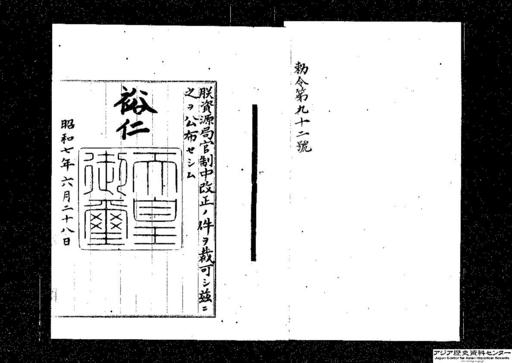 勅令第九十二號
朕資源局官制中改正ノ件ヲ裁可シ茲ニ
之ヲ公布セシム
裕仁
天皇
御璽
昭和七年六月二十八日
アジア歴史資料センター
Japan Center for Asian Historical Records